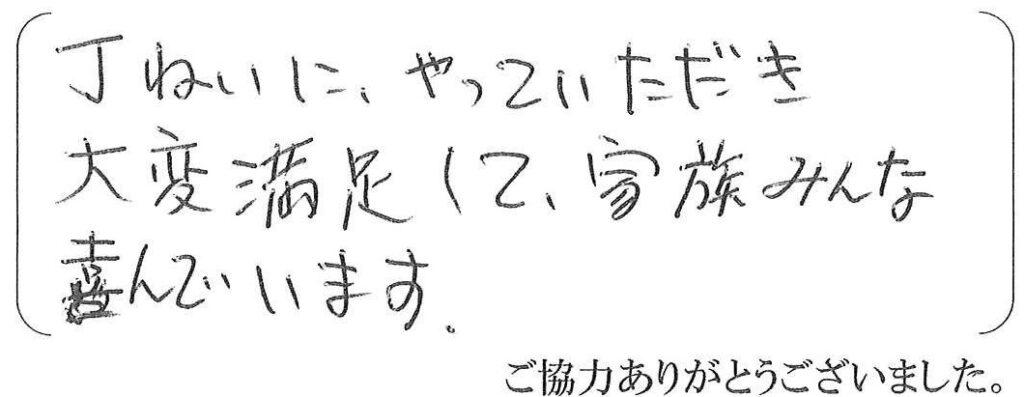 丁ねいに、やっていただき
大変満足して、家族みんな
喜んでいます.
ご協力ありがとうございました。